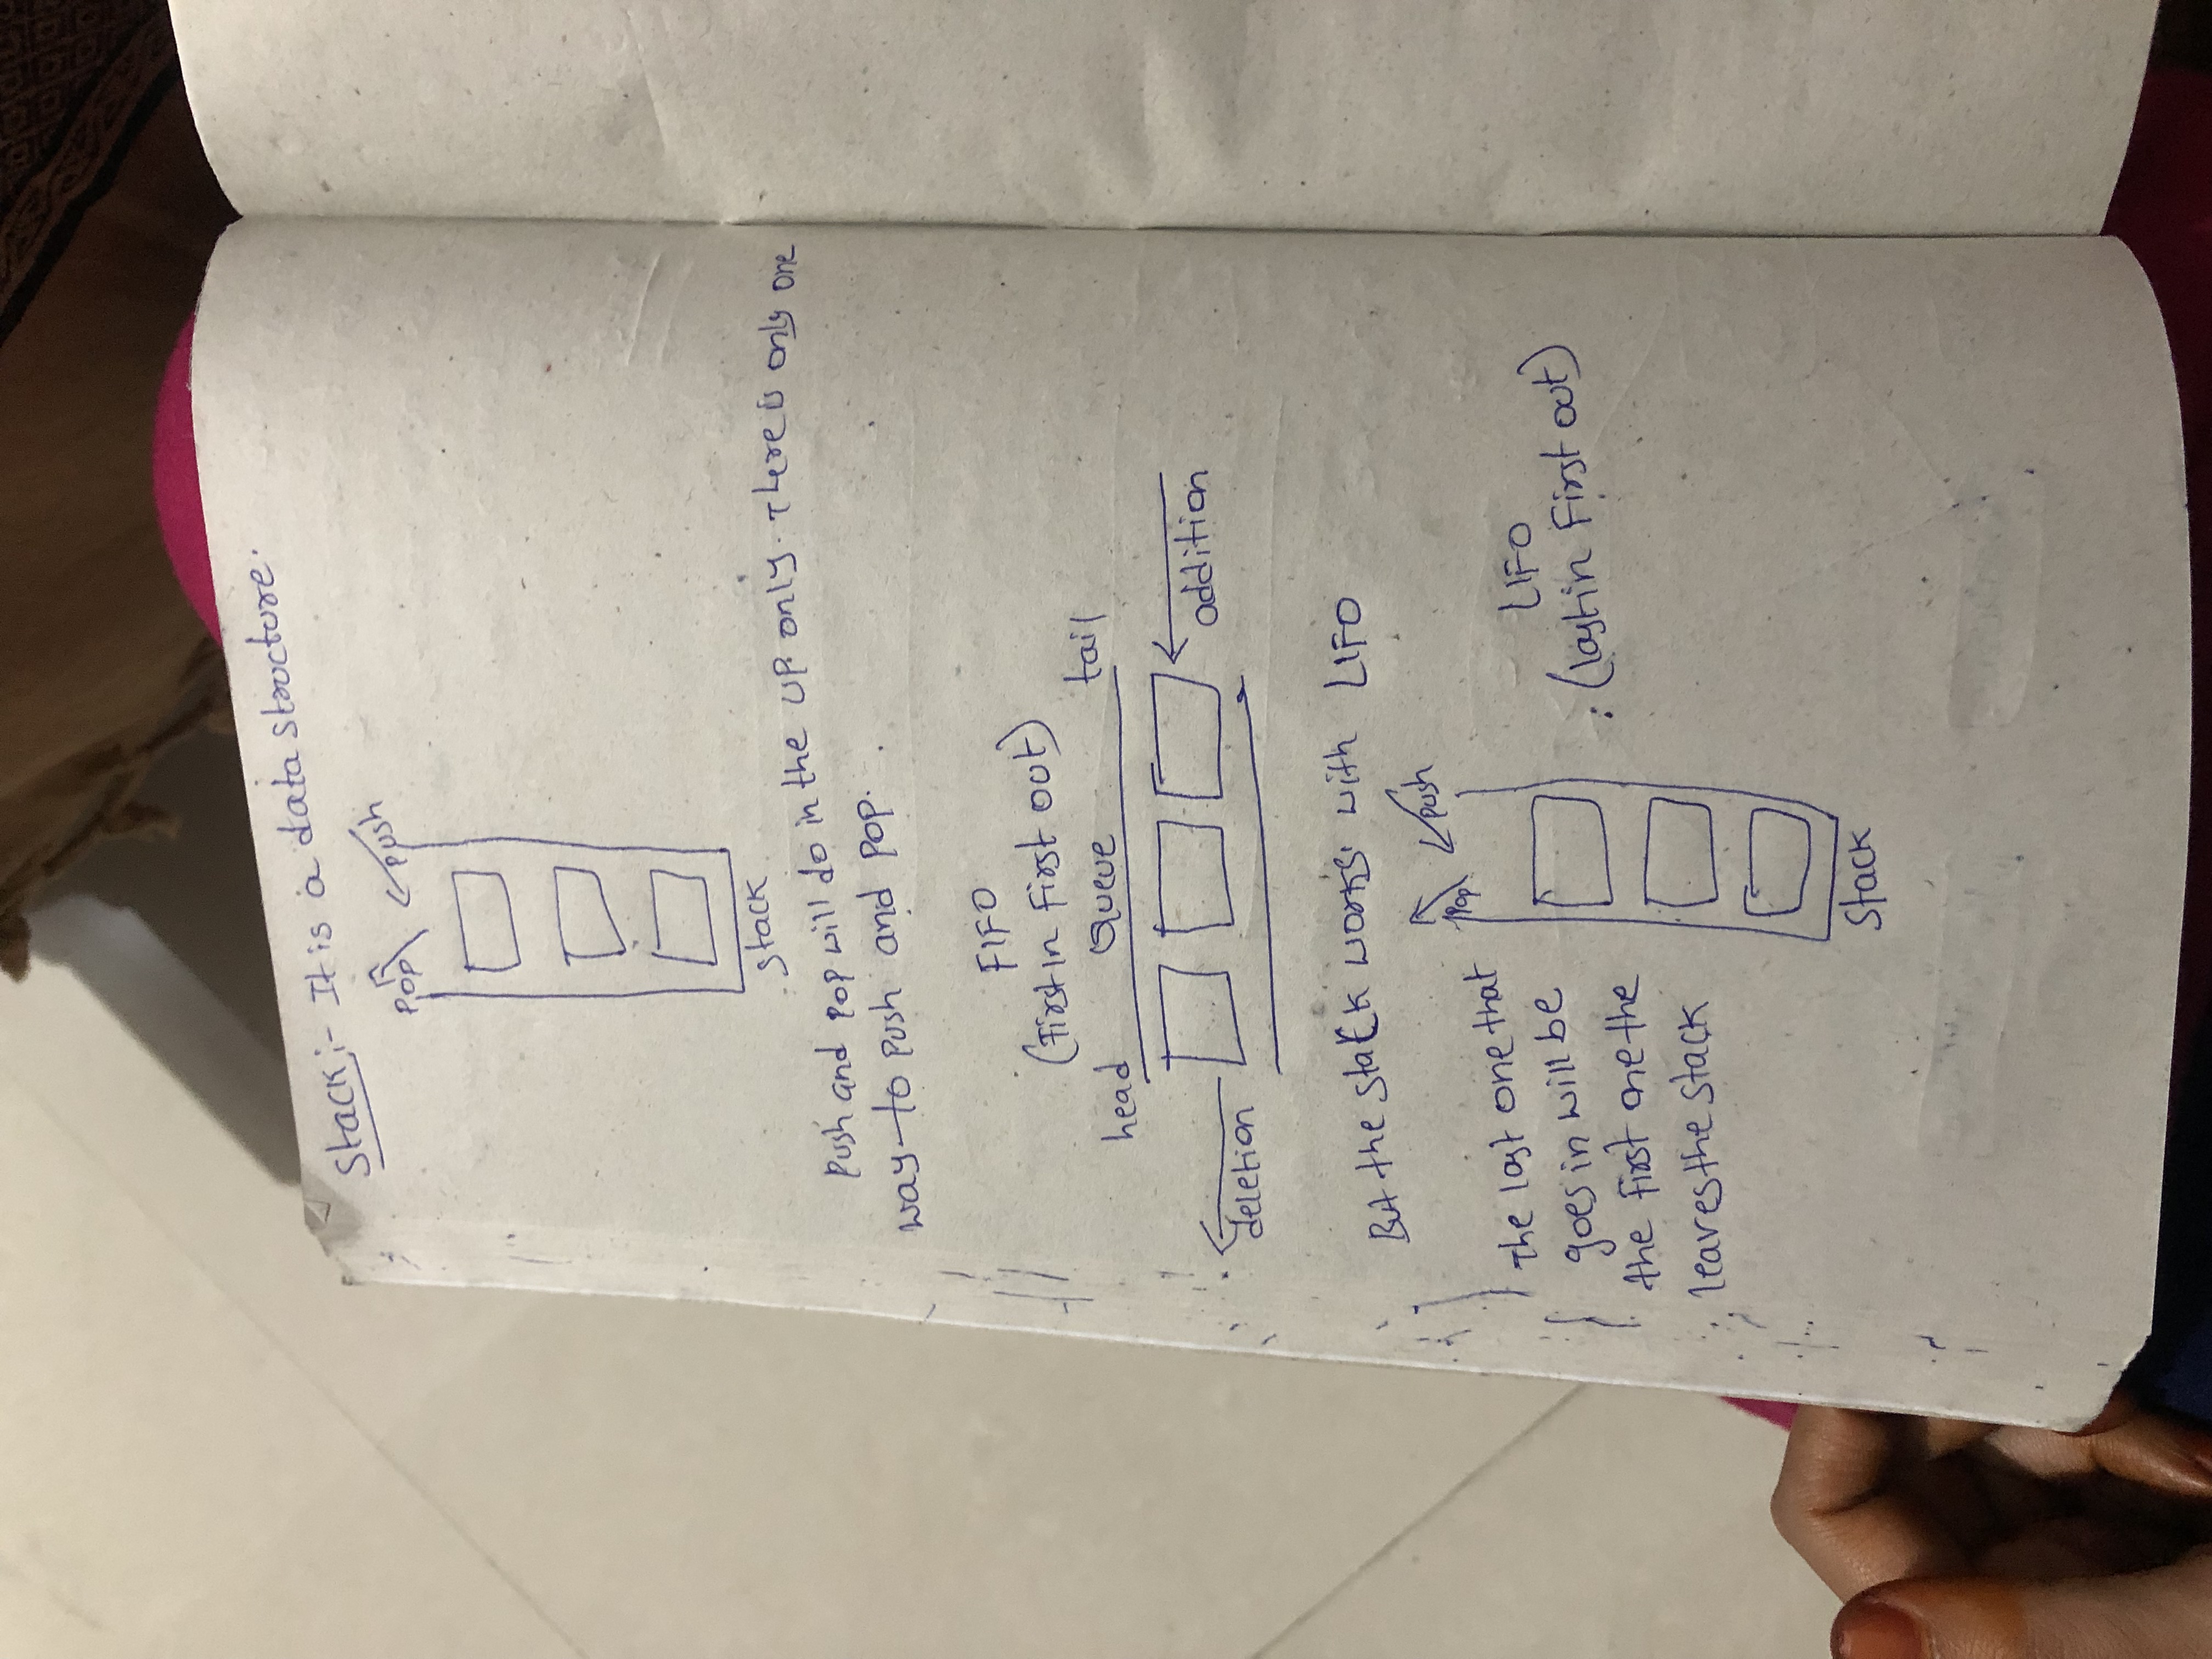 Stack :- It is a data structure.
POP push
Stack
Push and POP will do in the UP only. There is only one
way to push and Pop.
FIFO
(First in First out)
head Queue tail
addition
deletion
But the stack works with LIFO
Pop push
The last one that
goes in will be
the first one the
leaves the stack
LIFO
(last in First out)
Stack